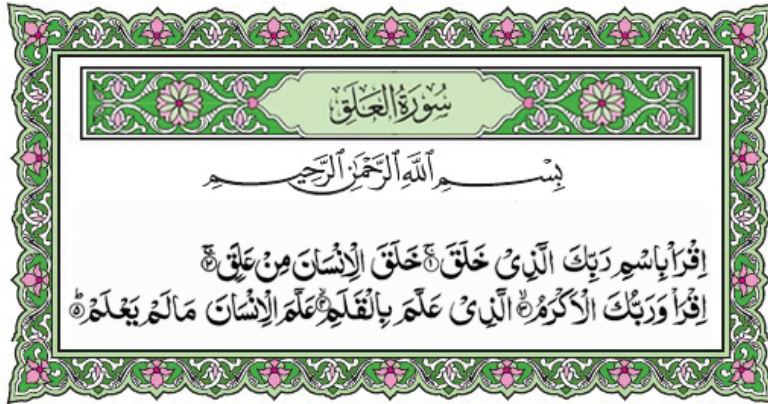 سُورَةُ الْعَلَقِ
بِسْمِ اللَّهِ الرَّحْمَٰنِ الرَّحِيمِ
اِقْرَاْ بِاسْمِ رَبِّكَ الَّذِیْ خَلَقَ ۚ﴿۱﴾ خَلَقَ الْاِنْسَانَ مِنْ عَلَقٍ ۚ﴿۲﴾
اِقْرَاْ وَرَبُّكَ الْاَكْرَمُ ۙ﴿۳﴾ الَّذِیْ عَلَّمَ بِالْقَلَمِ ۙ﴿۴﴾ عَلَّمَ الْاِنْسَانَ مَا لَمْ یَعْلَمْ ؕ﴿۵﴾